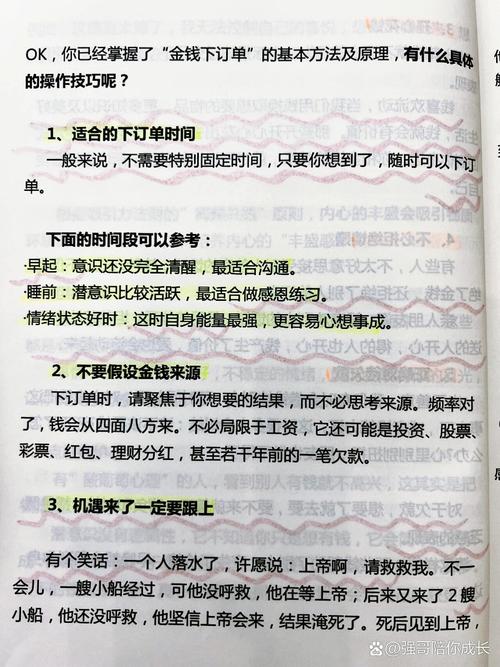 OK，你已经掌握了“金钱下订单”的基本方法及原理，有什么具体
的操作技巧呢？
1、适合的下订单时间
一般来说，不需要特别固定时间，只要你想到了，随时可以下订
单。
下面的时间段可以参考：
·早起：意识还没完全清醒，最适合沟通。
·睡前：潜意识比较活跃，最适合做感恩练习。
·情绪状态好时：这时自身能量最强，更容易心想事成。
2、不要假设金钱来源
下订单时，请聚焦于你想要的结果，而不必思考来源。频率对
了，钱会从四面八方来。不必局限于工资，它还可能是投资、股票、
彩票、红包、理财分红，甚至若干年前的一笔欠款。
3、机遇来了一定要跟上
有个笑话：一个人落水了，许愿说：上帝啊，请救救我。不一
会儿，一艘小船经过，可他没呼救，他在等上帝；后来又来了2艘
小船，他还没呼救，他坚信上帝会来，结果淹死了。死后见到上帝，
@强哥陪你成长